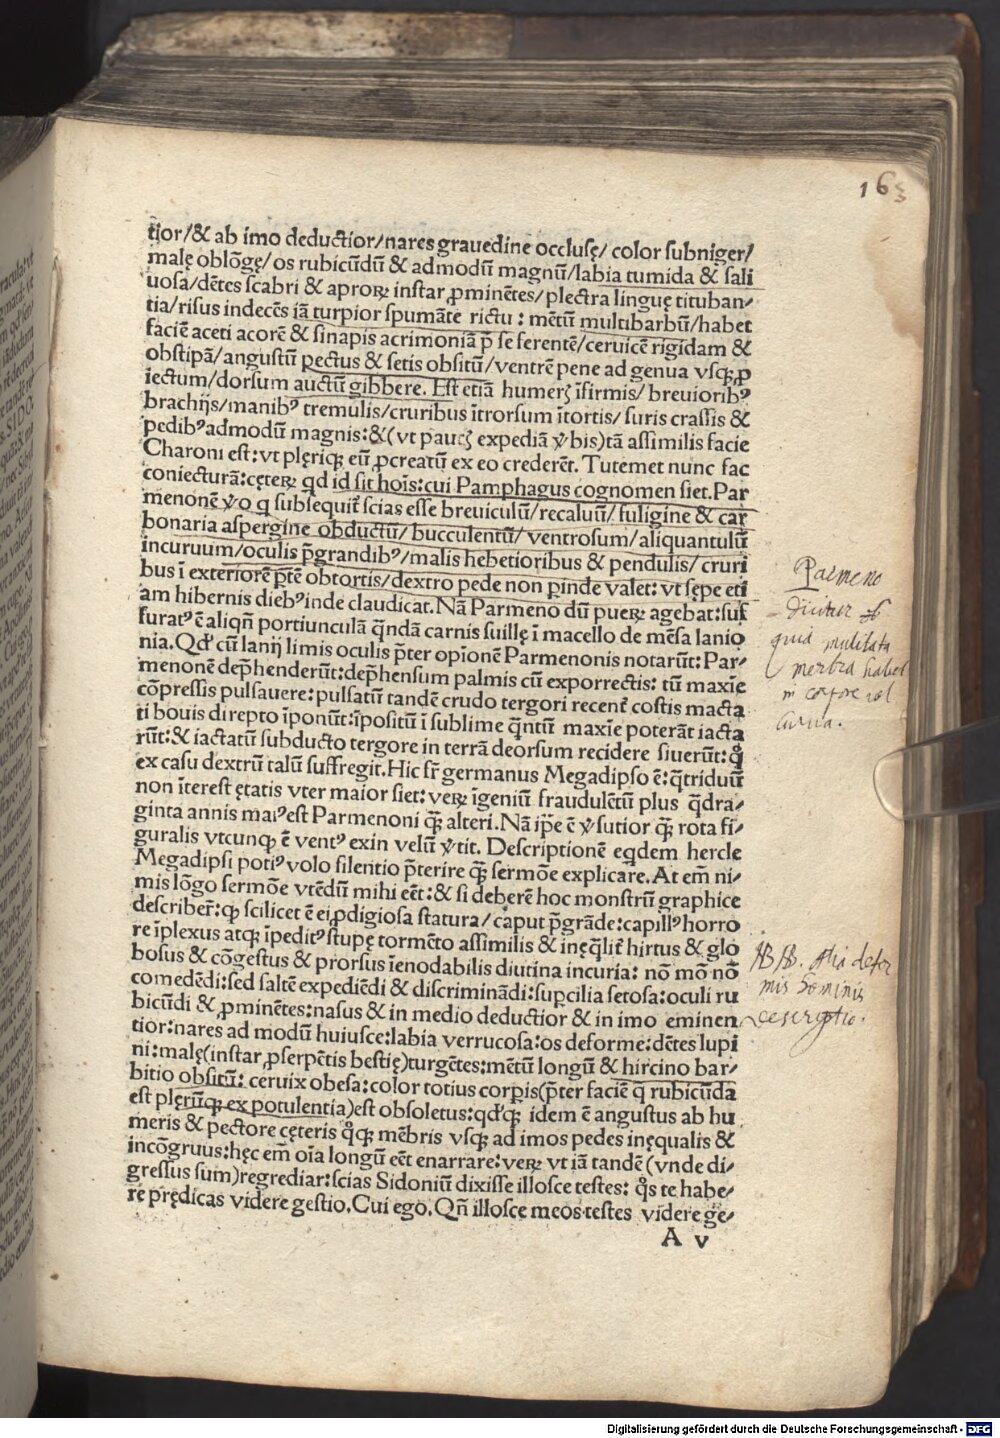 163
tior/& ab imo deductior/nares grauedine occlusę/ color subniger/
malę oblõgę/os rubicũdũ & admodũ magnũ/labia tumida & sali
uosa/dẽtes scabri & aproꝝ instar ꝓminẽtes/plectra linguę tituban⸗
tia/risus indecẽs iã turpior spumãte rictu: mẽtũ multibarbũ/habet
faciẽ aceti acorẽ & sinapis acrimoniã p̃ se ferentẽ/ceruicẽ rigidam &
obstipã/angustũ pectus & setis obsitũ/ventrẽ pene ad genua vsqꝫ ꝓ
iectum/dorsum auctũ gibbere. Est etiã humerꝭ ĩfirmis/breuioribꝰ
brachijs/manibꝰ tremulis/cruribus ĩtrorsum ĩtortis/suris crassis &
pedibꝰ admodũ magnis:&(vt paucꝭ expediã ꝟbis)tã assimilis facie
Charoni est:vt plęriqꝫ eũ ꝓcreatũ ex eo crederẽt. Tutemet nunc fac
coniecturã:cęteꝝ qd id sit hoĩs:cui Pamphagus cognomen siet.Par
menonẽ ꝟo q subsequit᷑ scias esse breuiculũ/recaluũ/fuligine & car
bonaria aspergine obductũ/bucculentũ/ventrosum/aliquantulũ
incuruum/oculis p̃grandibꝰ/malis hebetioribus & pendulis/cruri
bus ĩ exteriorẽ p̃tẽ obtortis/dextro pede non ꝑinde valet:vt sępe eti
am hibernis diebꝰ inde claudicat.Nã Parmeno dũ pueꝝ agebat:suf
furatꝰ ẽ aliqñ portiunculã q̃ndã carnis suillę ĩ macello de mẽsa lanio
nia.Qđ cũ lanij limis oculis p̃ter opiõnẽ Parmenonis notarũt:Par⸗
menonẽ dep̃henderũt:dep̃hensum palmis cũ exporrectis: tũ maxiẽ
cõpressis pulsauere:pulsatũ tandẽ crudo tergori recent᷑ costis macta
ti bouis direpto ĩponũt:ĩpositũ ĩ sublime q̃ntũ maxiẽ poterãt iacta
rũt:& iactatũ subducto tergore in terrã deorsum recidere siuerũt:ꝙ
ex casu dextrũ talũ suffregit.Hic fr̃ germanus Megadipso ẽ:q̃triduũ
non ĩterest ętatis vter maior siet:veꝝ ĩgeniũ fraudulẽtũ plus q̃dra⸗
ginta annis maiꝰ est Parmenoni q̃ꝫ alteri.Nã ip̃e ẽ ꝟsutior q̃ꝫ rota fi⸗
guralis vtcunqꝫ ẽ ventꝰ exin velũ ꝟtit. Descriptionẽ eqdem hercle
Megadipsi potiꝰ volo silentio p̃terire q̃ꝫ sermõe explicare.At em̃ ni⸗
mis lõgo sermõe vtẽdũ mihi eẽt:& si deberẽ hoc monstrũ graphice
describer̃:qꝫ scilicet ẽ ei ꝓdigiosa statura/caput p̃grãde:capillꝰ horro
re ĩplexus atqꝫ ĩpeditꝰ stupę tormẽto assimilis & inęq̃lit᷑ hirtus & glo
bosus & cõgestus & prorsus ĩenodabilis diutina incuria: nõ mõ nõ
comedẽdi:sed saltẽ expediẽdi & discriminãdi:supcilia setosa:oculi ru
bicũdi & ꝓminẽtes:nasus & in medio deductior & in imo eminen
tior:nares ad modũ huiusce:labia verrucosa:os deforme:dẽtes lupi
ni:malę(instar ꝓserpẽtis bestię)turgẽtes:mẽtũ longũ & hircino bar⸗
bitio obsitũ: ceruix obesa:color totius corꝑis(p̃ter faciẽ q̃ rubicũda
est plęrũqꝫ ex potulentia)est obsoletus:qđqꝫ idem ẽ angustus ab hu
meris & pectore cęteris ꝙ̊qꝫ mẽbris vsqꝫ ad imos pedes inęqualis &
incõgruus:hęc em̃ oĩa longũ eẽt enarrare:veꝝ vt iã tandẽ(vnde di⸗
gressus sum)regrediar:scias Sidoniũ dixisse illosce testes: q̊s te habe⸗
re prędicas videre gestio.Cui ego.Qñ illosce meos testes videre ge⸗
A v
Parmeno
dicitur
quia mutilata
membra habet
in corpore vel
curua.
NB NB. Alia defor
mis hominis
descriptio.
Digitalisierung gefördert durch die Deutsche Forschungsgemeinschaft - DFG